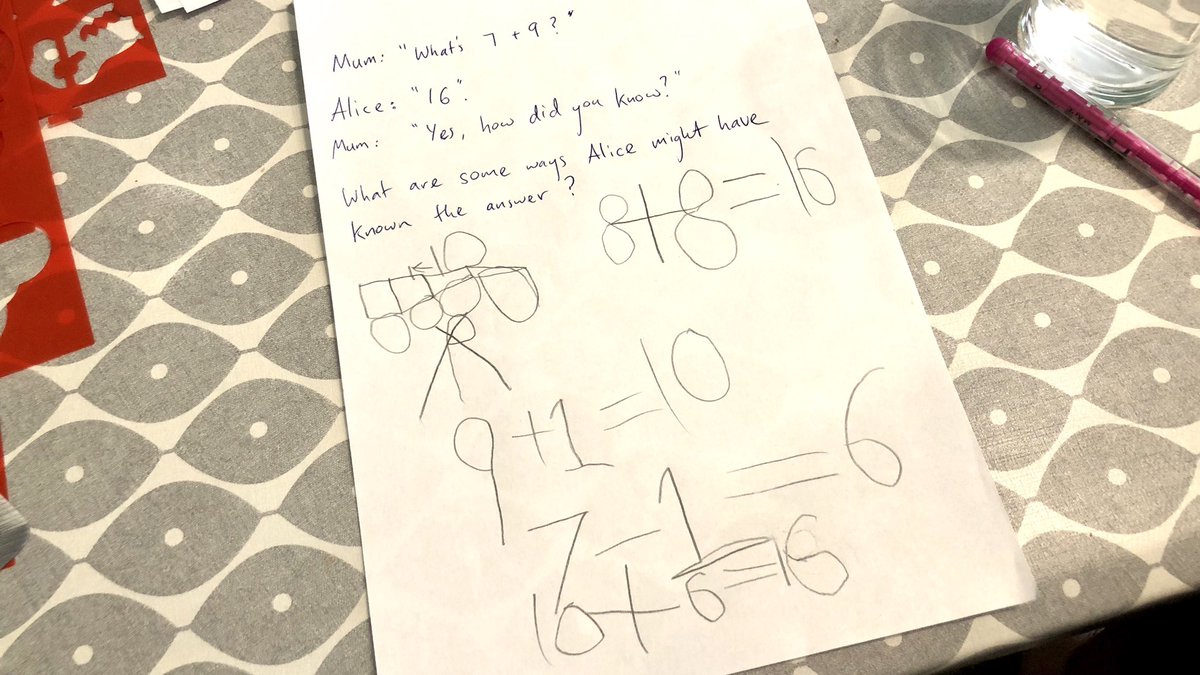 Mum: "What's 7 + 9?"
Alice: "16".
Mum: "Yes, how did you know?"
What are some ways Alice might have
known the answer?
8+8=16
10
9+1=10
7-1=6
10+6=16